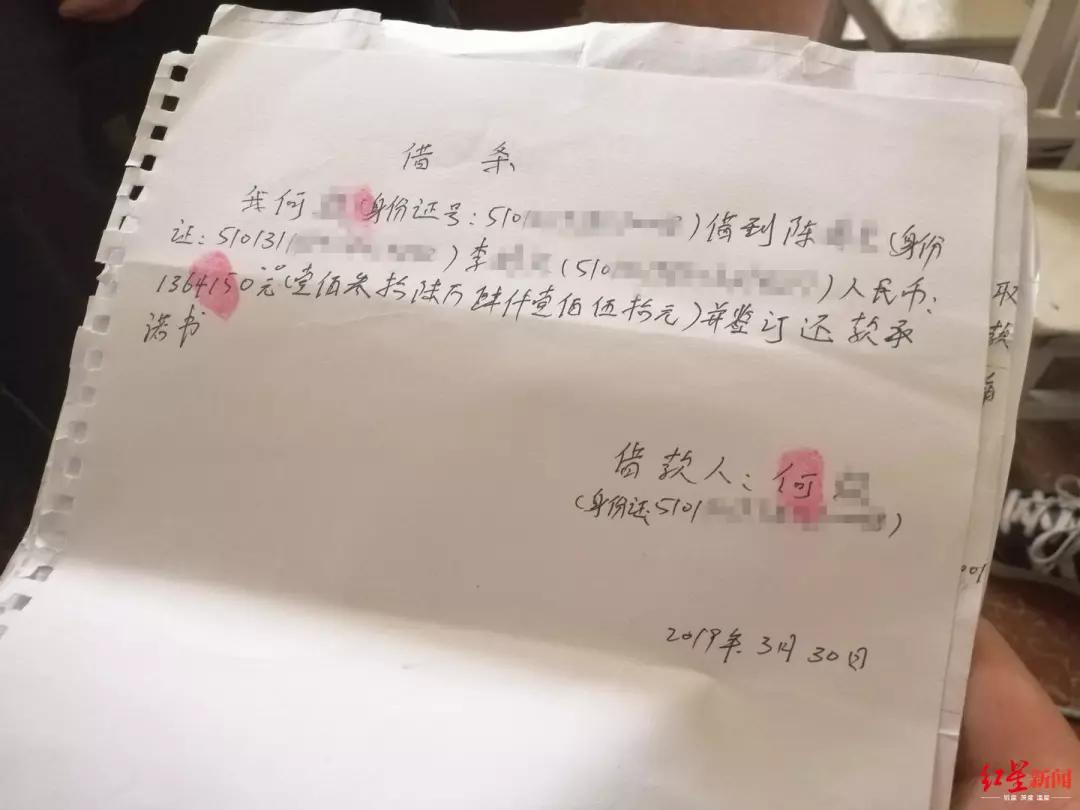 借 条
我何 (身份证号:5101 )借到陈 (身份
证:510131 )李 (510 )人民币:
1364150元(壹佰叁拾陆万肆仟壹佰伍拾元)并鉴订还款承
诺书
借款人:何
(身份证5101 )
2019年3月30日
取
款
有
001
红星新闻